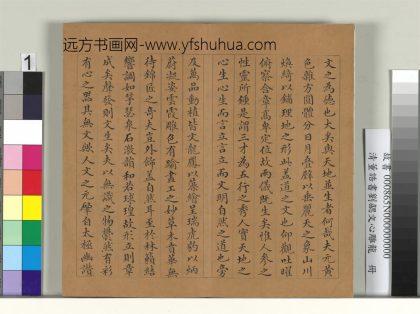 远方书画网-www.yfshuhua.com
文之為德也大矣與天地並生者何哉夫元黃
色雜方圓體分日月疊璧以垂麗天之象山川
煥綺以鋪理地之形此蓋道之文也仰觀吐曜
俯察含章高卑定位故兩儀既生矣惟人參之
性靈所鍾是謂三才為五行之秀人實天地之
心生心生而言立言立而文明自然之道也旁
及萬品動植皆文龍鳳以藻繪呈瑞虎豹以炳
蔚凝姿雲霞雕色有踰畫工之妙草木賁華無
待錦匠之奇夫豈外飾蓋自然耳至於林籟結
響調如竽瑟泉石激韻和若球鍠故形立則章
成矣聲發則文生矣夫以無識之物鬱然有彩
有心之器其無文歟人文之元肇自太極幽讚
故書 000865N000000000
清董誥書劉勰文心雕龍 冊
1